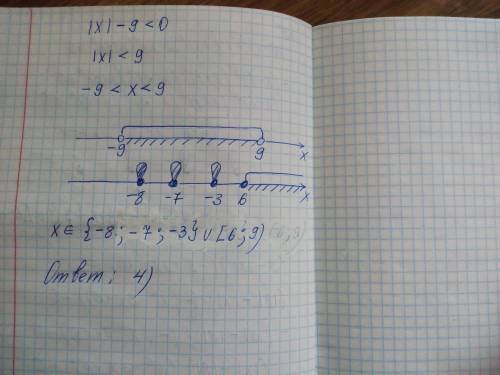 |x| - 9 < 0
|x| < 9
-9 < x < 9
-9 9 x
-8 -7 -3 6 x
x ∈ {-8; -7; -3} ∪ [6; 9)
Ответ: 4)